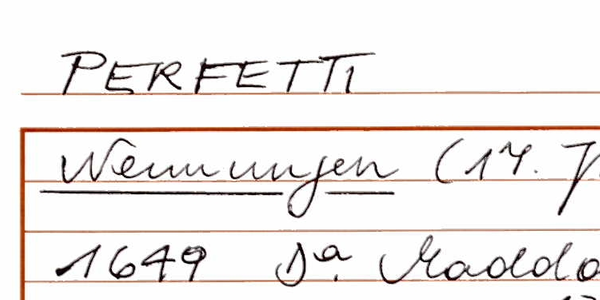 PERFETTI
Nennungen (17. J
1649 Da. Maddo